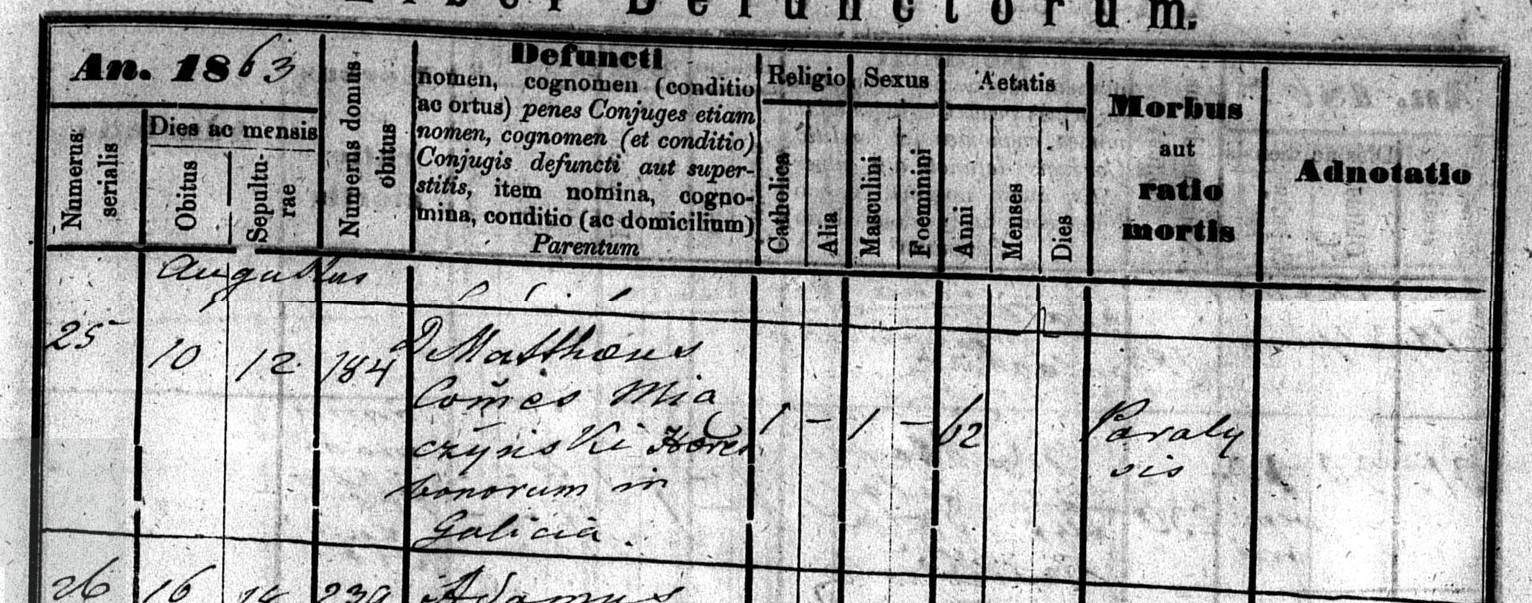 Liber Defunctorum.
An. 1863
Numerus serialis
Dies ac mensis
Obitus
Sepultu-
rae
Numerus domus
obitus
Defuncti
nomen, cognomen (conditio
ac ortus) penes Conjuges etiam
nomen, cognomen (et conditio)
Conjugis defuncti aut super-
stitis, item nomina, cogno-
mina, conditio (ac domicilium)
Parentum
Religio
Catholica
Alia
Sexus
Masculini
Foeminini
Aetatis
Anni
Menses
Dies
Morbus
aut
ratio
mortis
Adnotatio
Augustus
25 10 12 184 D Matthæus
Com̄es Mia
czynski Hæres 1 - 1 - 62 Paraly
bonorum in sis
Galicia.
26 16 18 239 Adamus